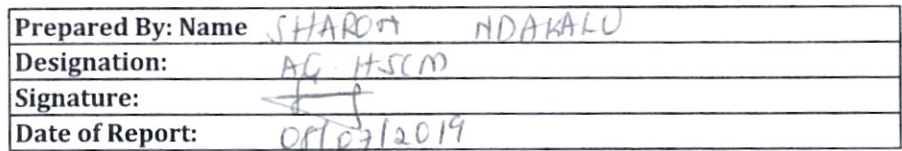 Prepared By: Name SHARON NDAKALU
Designation: AG. HSCM
Signature:
Date of Report: 08/07/2019